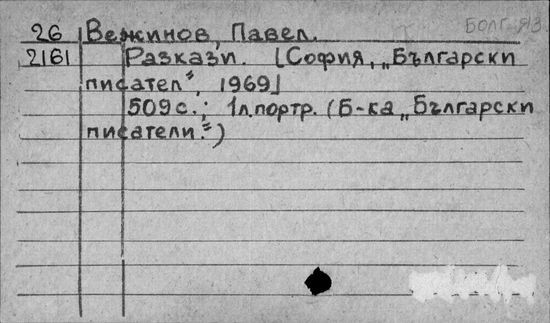 БОЛГ. ЯЗ.
26 Вежинов, Павел.
2161 Разкази. [София, „Български
писател“, 1969]
509 с.; 1 л. портр. (Б-ка „Български
писатели.“)